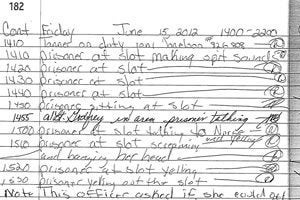 182
Cont Friday June 15, 2012 1400-2200
1410 on duty
1410 prisoner at slot making spit sounds
1420 prisoner at slot
1430 prisoner at slot
1440 prisoner at slot
1450 prisoner sitting at slot
1455 in area prisoner talking
1500 prisoner at slot talking to
1510 prisoner at slot screaming and yelling
and banging her head
1520 prisoner at slot yelling
1530 prisoner yelling out the slot
Note This officer asked if she could get